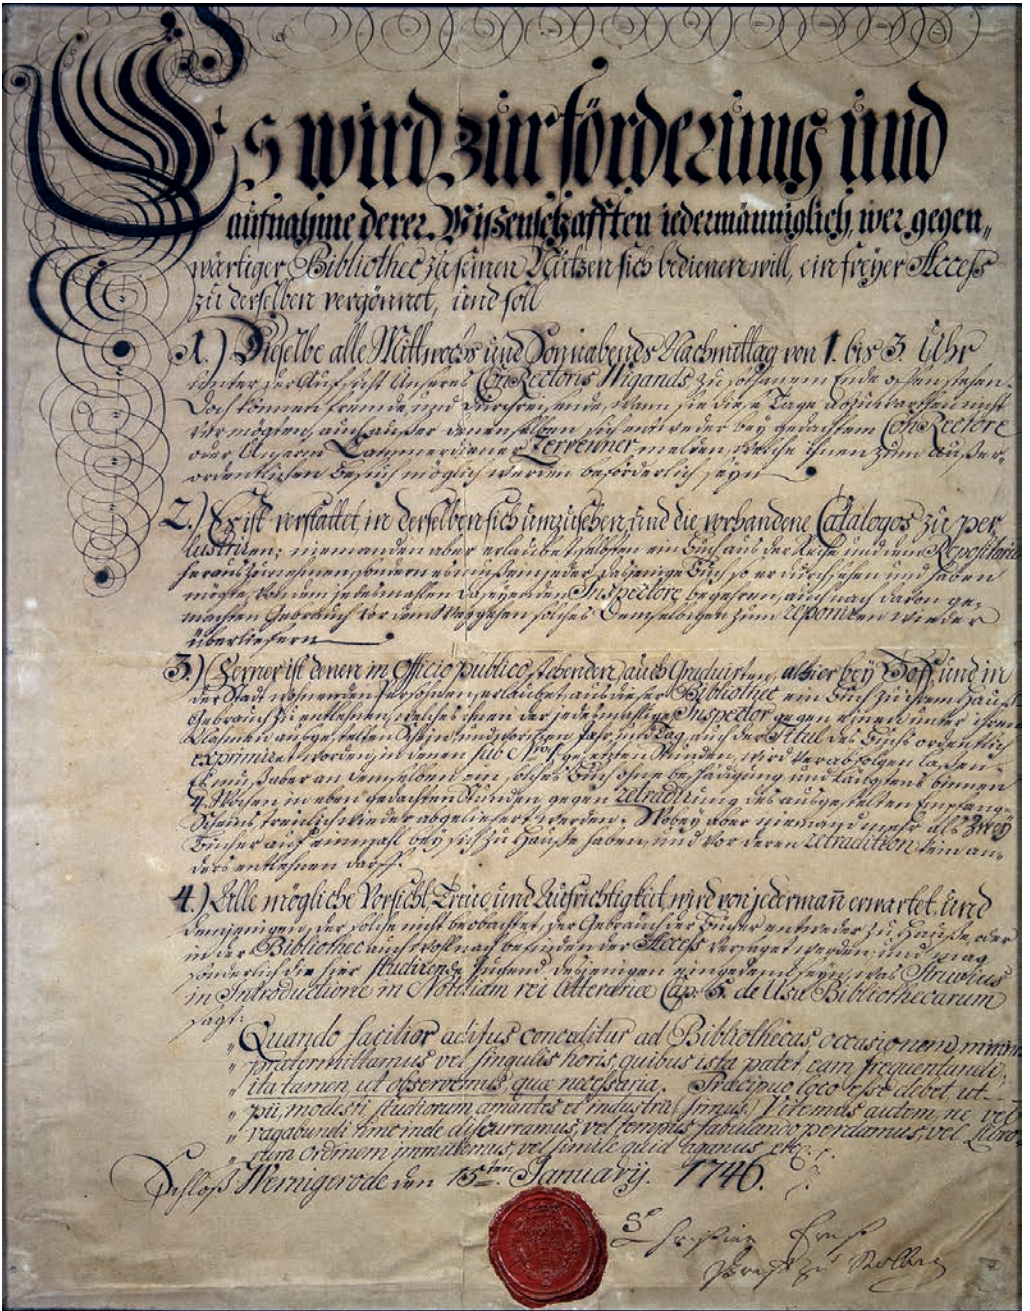 Es wird zur förderung und
aufnahme derer Wißenschafften iedermänniglich, wer gegen„
wärtiger Bibliothec zu seinen Nutzen sich bedienen will, ein freyer Access
zu derselben vergönnet, und soll
1.) Dieselbe alle Mittwochs und Sonnabends Nachmittag von 1. bis 3. Uhr
unter der Aufsicht Unseres ConRectoris Wigands zu solchem Ende offen stehen.
Doch können fremde und durchreisende, wann sie diese Tage abzuwarthen nicht
vermögten, auch außer denenselben sich entweder bey gedachtem ConRectore
oder Unserm Cammerdiener Zervenner melden, welche ihnen zum außer-
ordentlichen Besuch möglich werden beförderlich seyn
2.) Es ist verstattet, in derselben sich umzusehen, und die vorhandene Catalogos zu per
lustriren; niemanden aber erlaubet, selbsten ein Buch aus der Reihe und dem Repositorio
herauszunehmen, sondern es muß ein jeder dasjenige Buch so er durchsehen und haben
mögte, von dem jedesmahlen daseyenden Inspectore begehren, auch nach davon ge-
machten Gebrauch vor dem Weggehen solches demselbigen zum reponiren wieder
überliefern
3.) Ferner ist denen in Officio publico stehenden, auch Graduirten, alhier bey Hoff, und in
der Stadt wohnenden Persohnen, erlaubet, aus dieser Bibliothec ein Buch zu ihrem Hauß
Gebrauch zu entlehnen, welches ihnen der jedesmahlige Inspector gegen einen unter ihrem
Nahmen ausgestellten Schein, und worinnen Jahr und Tag, auch der Titul des Buchs ordentlich
exprimiret worden, in denen sub No. 1. gesetzten Stunden, wird verabfolgen laßen.
Es muß aber an demselben ein solches Buch ohne beschädigung und längstens binnen
4. Wochen in eben gedachten Stunden, gegen retradirung des ausgestelten Empfang-
Scheins, treulich wieder abgeliefert werden. Wobey aber niemand mehr als zwey
Bücher auf einmahl bey sich zu Hauße haben, und vor deren retradition kein an-
ders entlehnen darff.
4.) Alle mögliche Vorsicht, Treue, und Aufrichtigkeit, wird von jedermann erwartet, und
demjenigen, der solche nicht beobachtet, der Gebrauch der Bücher entweder zu Hauße, oder
in der Bibliothec auch wohl nach befinden der Access versaget werden; und mag
sonderlich die hier studirende Jugend desjenigen eingedenck seyn, was Struvius
in Introductione in Notitiam rei litterariæ Cap. 5. de Usu Bibliothecarum
sagt:
„Quando facilior aditus conceditur ad Bibliothecas, occasionem, minime
„prætermittamus vel singulis horis, quibus ista patet, eam frequentandi,
„ita tamen, ut observemus, quæ necessaria. Præcipuo loco esse debet, ut
„pii, modesti, studiorum amantes et industrii simus. Vitemus autem, ne vel
„vagabundi hinc inde discurramus, vel tempus fabulando perdamus, vel libro-
„rum ordinem immutemus, vel simile quid agamus, etc.
Schloß Wernigerode den 15ten January. 1746.
Christian Ernst
Graf zu Stolberg